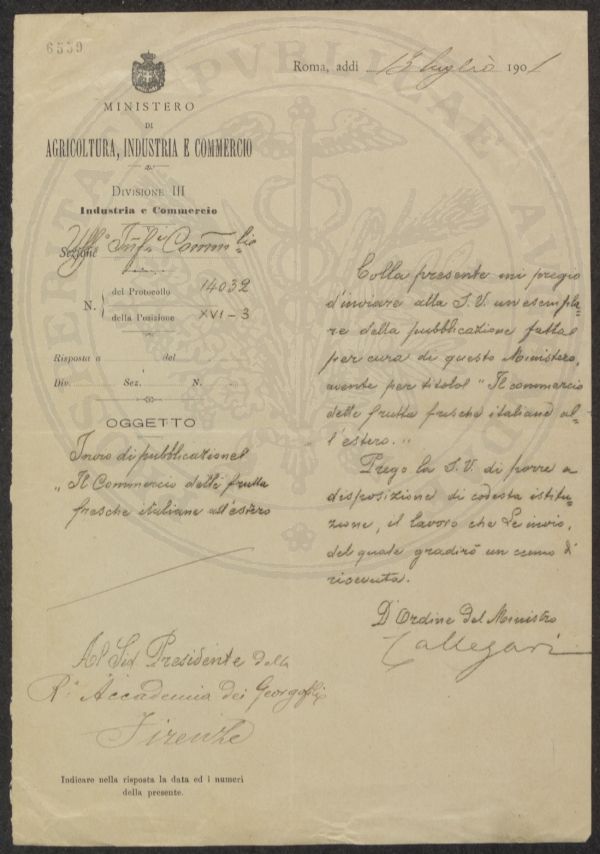 6559
Roma, addì 13 luglio 1901
MINISTERO
DI
AGRICOLTURA, INDUSTRIA E COMMERCIO
DIVISIONE III
Industria e Commercio
Sezione Uffo Infe Commlio
N. del Protocollo 14032
della Posizione XVI-3
Risposta a del
Div. Sez. N.
OGGETTO
Invio di pubblicazione
"Il Commercio delle frutta
fresche italiane all'estero
Colla presente mi pregio
d'inviare alla S. V. un esempla-
re della pubblicazione fatta
per cura di questo Ministero,
avente per titolo "Il commercio
delle frutta fresche italiane al-
l'estero."
Prego la S. V. di porre a
disposizione di codesta istitu-
zione, il lavoro che Le invio,
del quale gradirò un cenno di
ricevuta.
D'Ordine del Ministro
Callegari
Al Sig. Presidente della
R. Accademia dei Georgofili
Firenze
Indicare nella risposta la data ed i numeri
della presente.